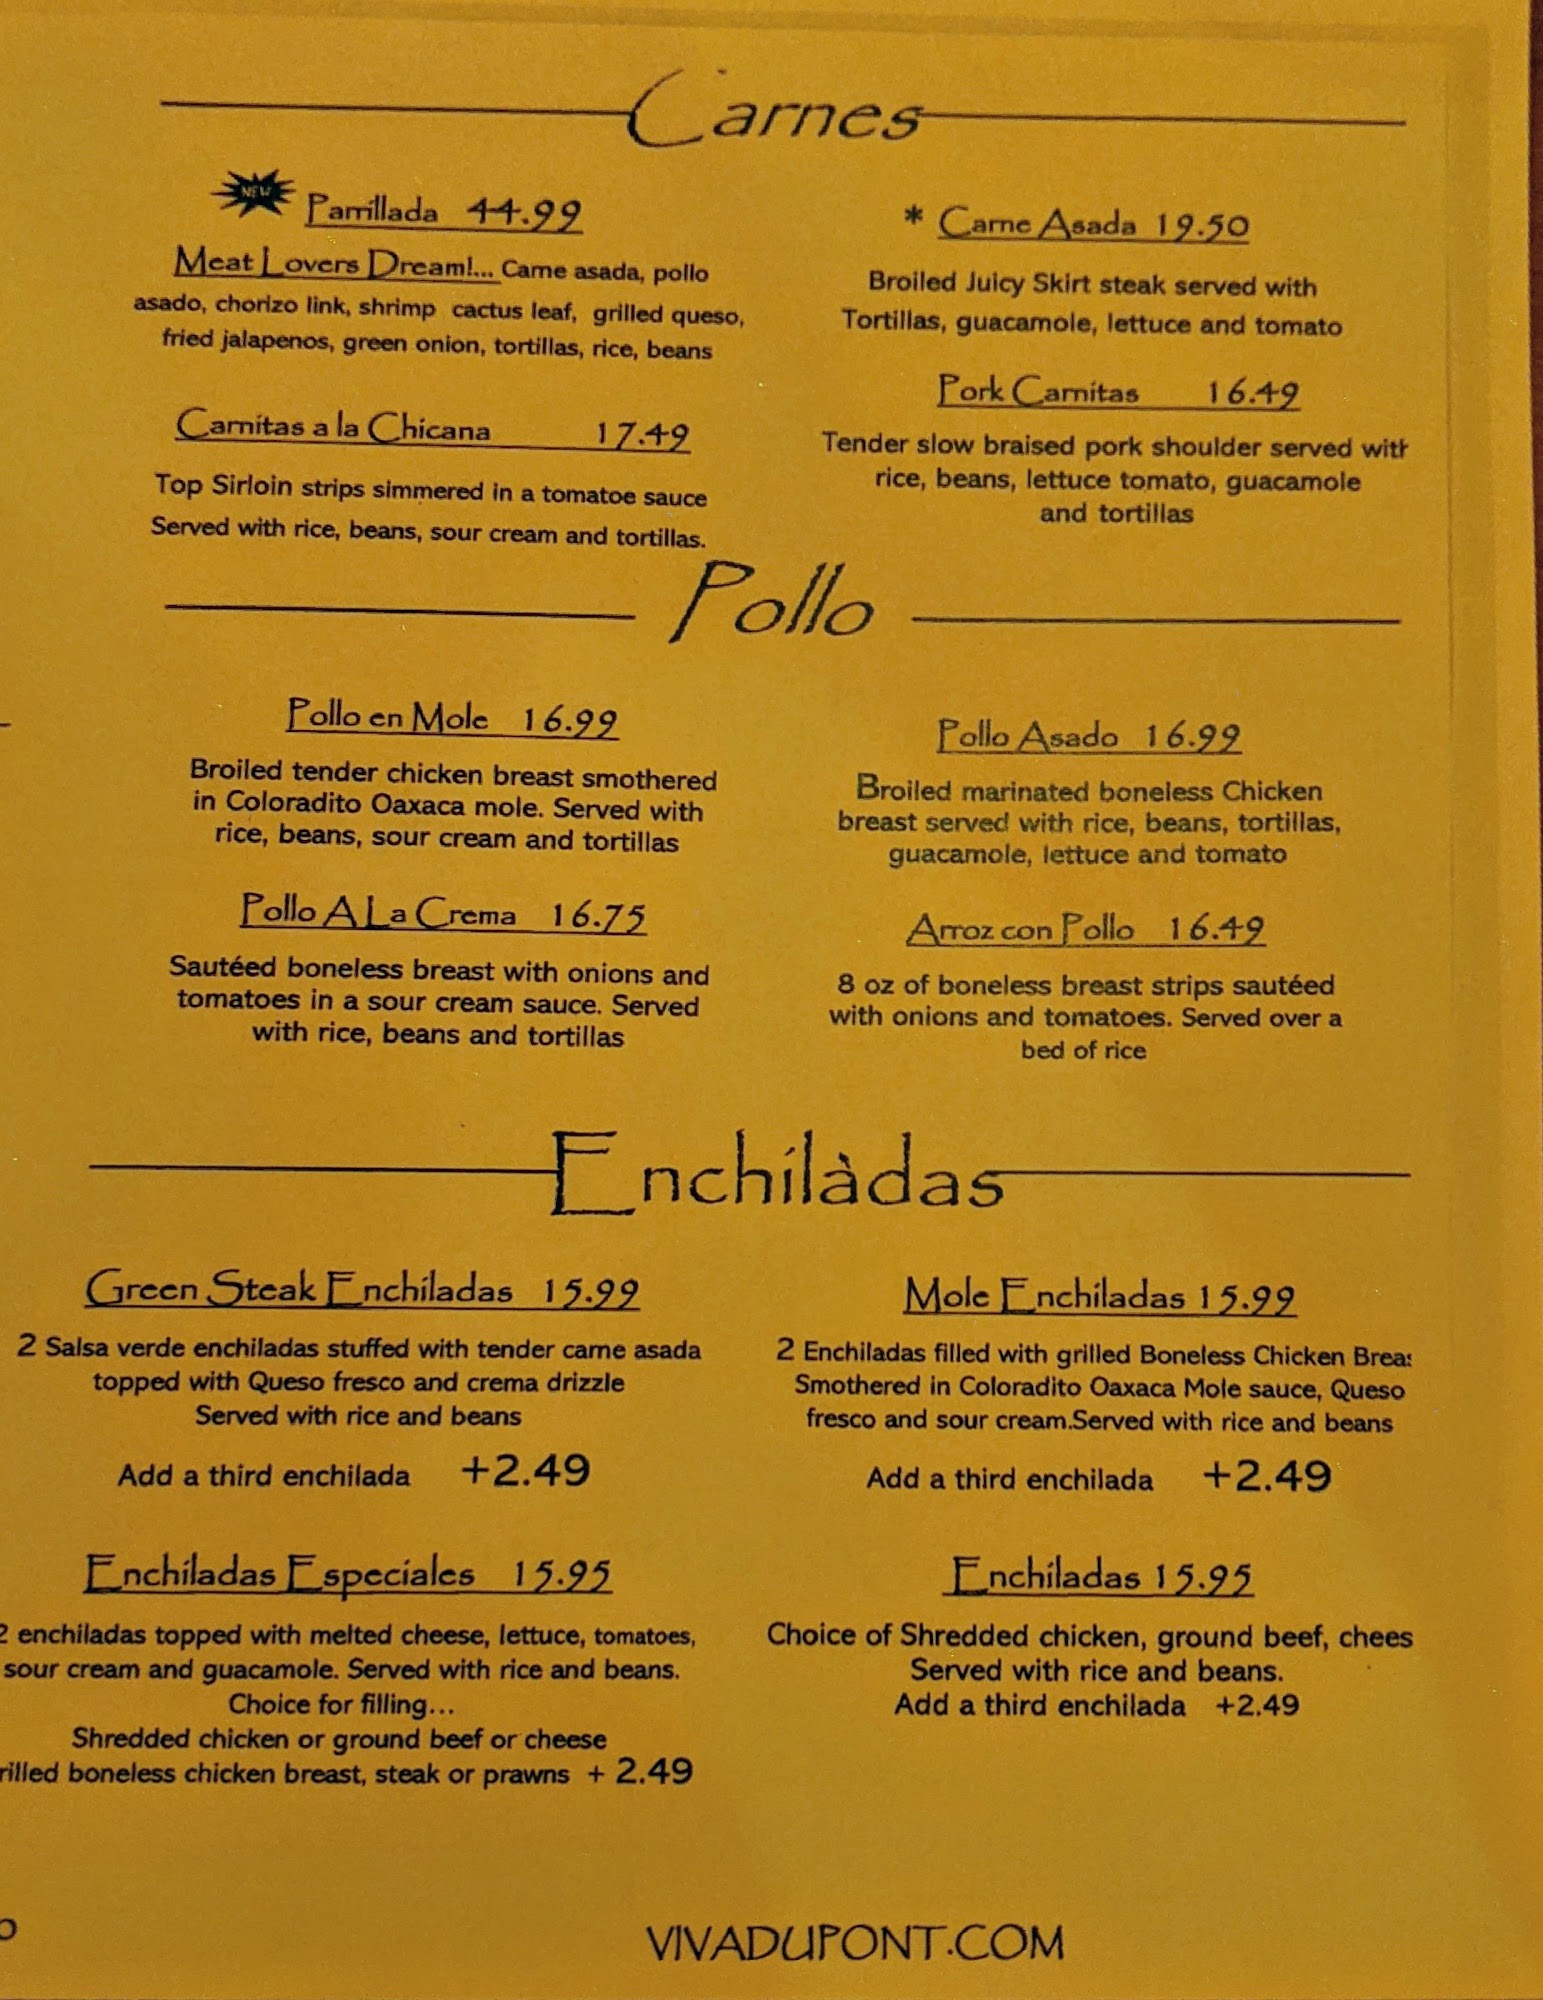 Carnes
NEW
Parrillada 44.99
Meat Lovers Dream!... Carne asada, pollo
asado, chorizo link, shrimp cactus leaf, grilled queso,
fried jalapenos, green onion, tortillas, rice, beans
* Carne Asada 19.50
Broiled Juicy Skirt steak served with
Tortillas, guacamole, lettuce and tomato
Carnitas a la Chicana 17.49
Top Sirloin strips simmered in a tomatoe sauce
Served with rice, beans, sour cream and tortillas.
Pork Carnitas 16.49
Tender slow braised pork shoulder served with
rice, beans, lettuce tomato, guacamole
and tortillas
Pollo
Pollo en Mole 16.99
Broiled tender chicken breast smothered
in Coloradito Oaxaca mole. Served with
rice, beans, sour cream and tortillas
Pollo Asado 16.99
Broiled marinated boneless Chicken
breast served with rice, beans, tortillas,
guacamole, lettuce and tomato
Pollo A La Crema 16.75
Sautéed boneless breast with onions and
tomatoes in a sour cream sauce. Served
with rice, beans and tortillas
Arroz con Pollo 16.49
8 oz of boneless breast strips sautéed
with onions and tomatoes. Served over a
bed of rice
Enchilàdas
Green Steak Enchiladas 15.99
2 Salsa verde enchiladas stuffed with tender carne asada
topped with Queso fresco and crema drizzle
Served with rice and beans
Add a third enchilada +2.49
Mole Enchiladas 15.99
2 Enchiladas filled with grilled Boneless Chicken Breas
Smothered in Coloradito Oaxaca Mole sauce, Queso
fresco and sour cream.Served with rice and beans
Add a third enchilada +2.49
Enchiladas Especiales 15.95
2 enchiladas topped with melted cheese, lettuce, tomatoes,
sour cream and guacamole. Served with rice and beans.
Choice for filling...
Shredded chicken or ground beef or cheese
rilled boneless chicken breast, steak or prawns + 2.49
Enchiladas 15.95
Choice of Shredded chicken, ground beef, chees
Served with rice and beans.
Add a third enchilada +2.49
VIVADUPONT.COM